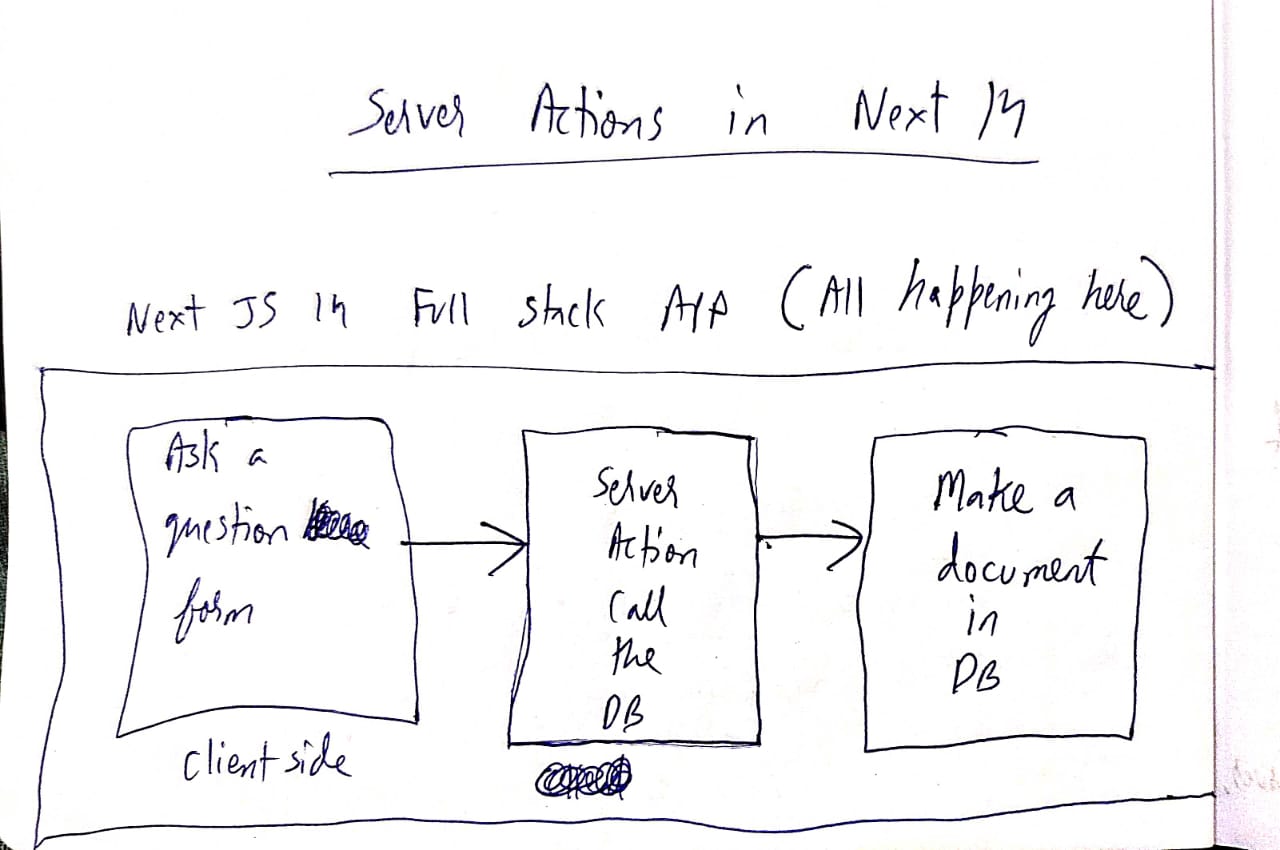 Server Actions in Next 14
Next JS 14 Full stack App (All happening here)
Ask a
question
form
client side
Server
Action
Call
the
DB
Make a
document
in
DB